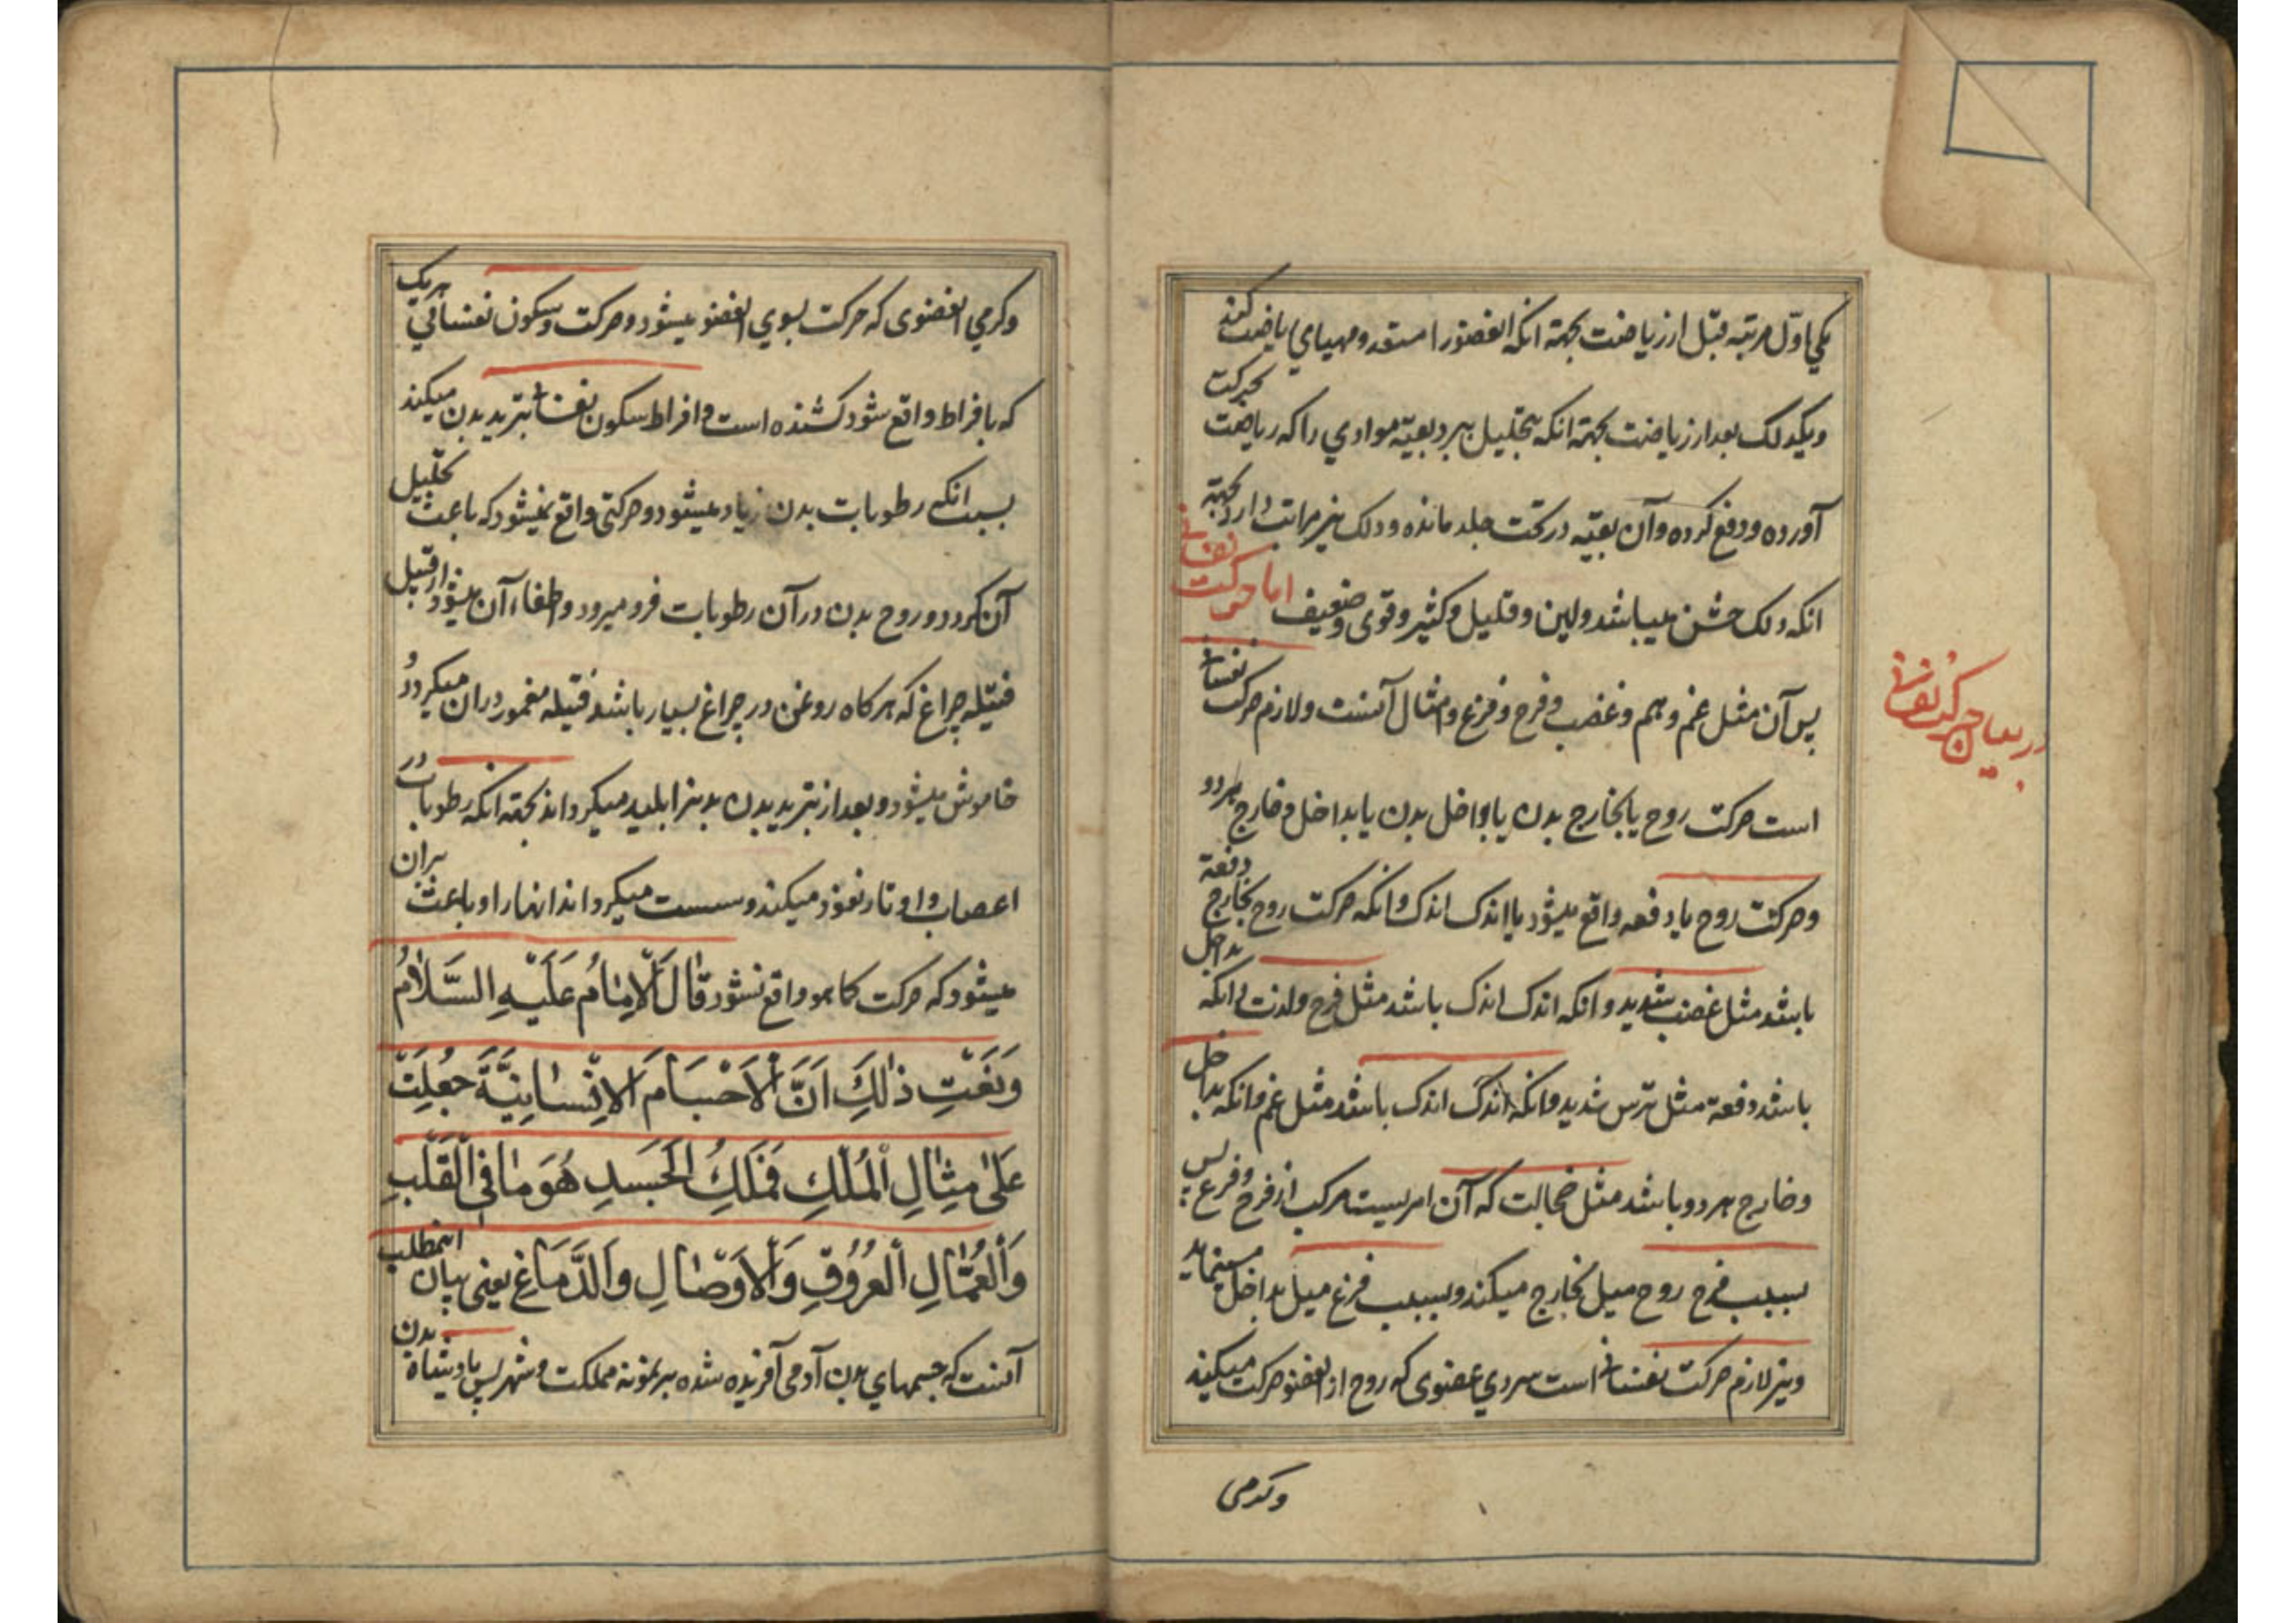 یکی اول مرتبه قبل از ریاضت بجهة انکه انعضورا مستعد ومهیای ریاضت کند
ویکدلک بعد از ریاضت بجهة انکه بتحلیل ببرد بقیّه موادی را که ریاضت بحرکت
آورده ودفع کرده وآن بقیّه در تحت جلد مانده ودلک نیز مراتب دارد بجهة
انکه دلک خشن میباشد ولین وقلیل وکثیر وقوی وضعیف اما حرکت نفسانی
پس آن مثل غم وهم وغضب وفرح وفزع وامثال آنست ولازم حرکت نفسانی
است حرکت روح یا بخارج بدن یا بداخل بدن یا بداخل وخارج هردو
وحرکت روح یا دفعه واقع میشود یا اندک اندک وانکه حرکت روح بخارج دفعة
باشد مثل غضب شدید وانکه اندک اندک باشد مثل فرح ولذت وانکه بداخل
باشد دفعة مثل ترس شدید وانکه اندک اندک باشد مثل غم وانکه بداخل
وخارج هردو باشد مثل خجالت که آن امریست مرکب از فرح وفزع پس
بسبب فرح روح میل بخارج میکند وبسبب فزع میل بداخل مینماید
ونیز لازم حرکت نفسانی است سردی عضوی که روح از انعضو حرکت میکند
وکرمی
در بیان حرکت نفسانی
وکرمی انعضوی که حرکت بسوی انعضو میشود وحرکت وسکون نفسانی هریک
که بافراط واقع شود کشنده است وافراط سکون نفسانی تبرید بدن میکند
بسبب انکه رطوبات بدن زیاد میشود وحرکتی واقع نمیشود که باعث تحلیل
آن کردد وروح بدن در آن رطوبات فرو میرود واطفاء آن میشود از قبیل
فتیله چراغ که هرکاه روغن در چراغ بسیار باشد فتیله مغمور دران میکردد و
خاموش میشود وبعد از تبرید بدن بدنرا بلید میکرداند بجهة انکه رطوبات در
اعصاب واوتار نفوذ میکند وسست میکرداند انهارا وباعث بران
میشود که حرکت کما هو واقع نشود قَالَ الْاِمٰامُ عَلَيْهِ السَّلٰامُ
وَنَعْتِ ذٰلِكَ اَنَّ الْاَجْسَامَ الْاِنْسٰانِيَّةَ جُعِلَتْ
عَلىٰ مِثٰالِ الْمُلْكِ فَمَلِكُ الْجَسَدِ هُوَ مٰا فِي الْقَلْبِ
وَالْعُمّٰالِ الْعُرُوْقِ وَالْاَوْصٰالِ وَالدَّمَاغِ یعنی بیان انمطلب
آنست که جسمهای بدن آدمی آفریده شده بر نمونه مملکت وشهر پس پادشاه بدن